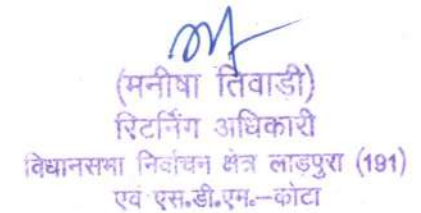 (मनीषा तिवाडी)
रिटर्निंग अधिकारी
विधानसभा निर्वाचन क्षेत्र लाडपुरा (191)
एवं एस.डी.एम.-कोटा